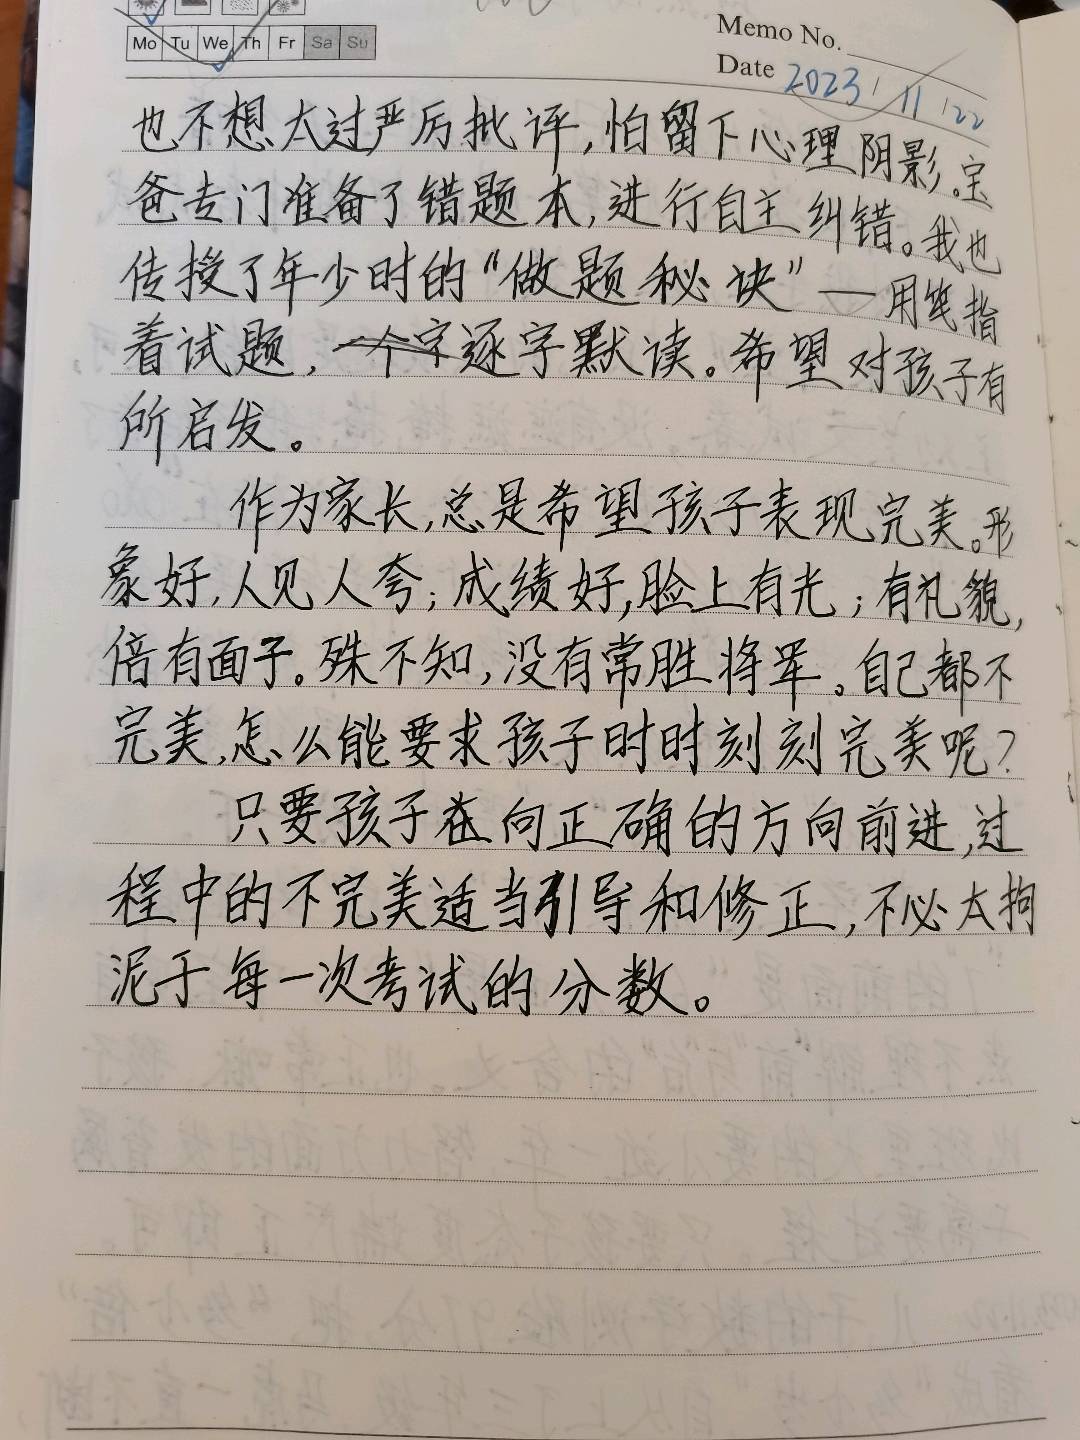 Mo Tu We Th Fr Sa Su
Memo No.
Date 2023/11/22
也不想太过严厉批评,怕留下心理阴影。宝
爸专门准备了错题本,进行自主纠错。我也
传授了年少时的“做题秘诀”——用笔指
着试题,逐字默读。希望对孩子有
所启发。
作为家长,总是希望孩子表现完美。形
象好,人见人夸;成绩好,脸上有光;有礼貌,
倍有面子。殊不知,没有常胜将军。自己都不
完美,怎么能要求孩子时时刻刻完美呢?
只要孩子在向正确的方向前进,过
程中的不完美适当引导和修正,不必太拘
泥于每一次考试的分数。